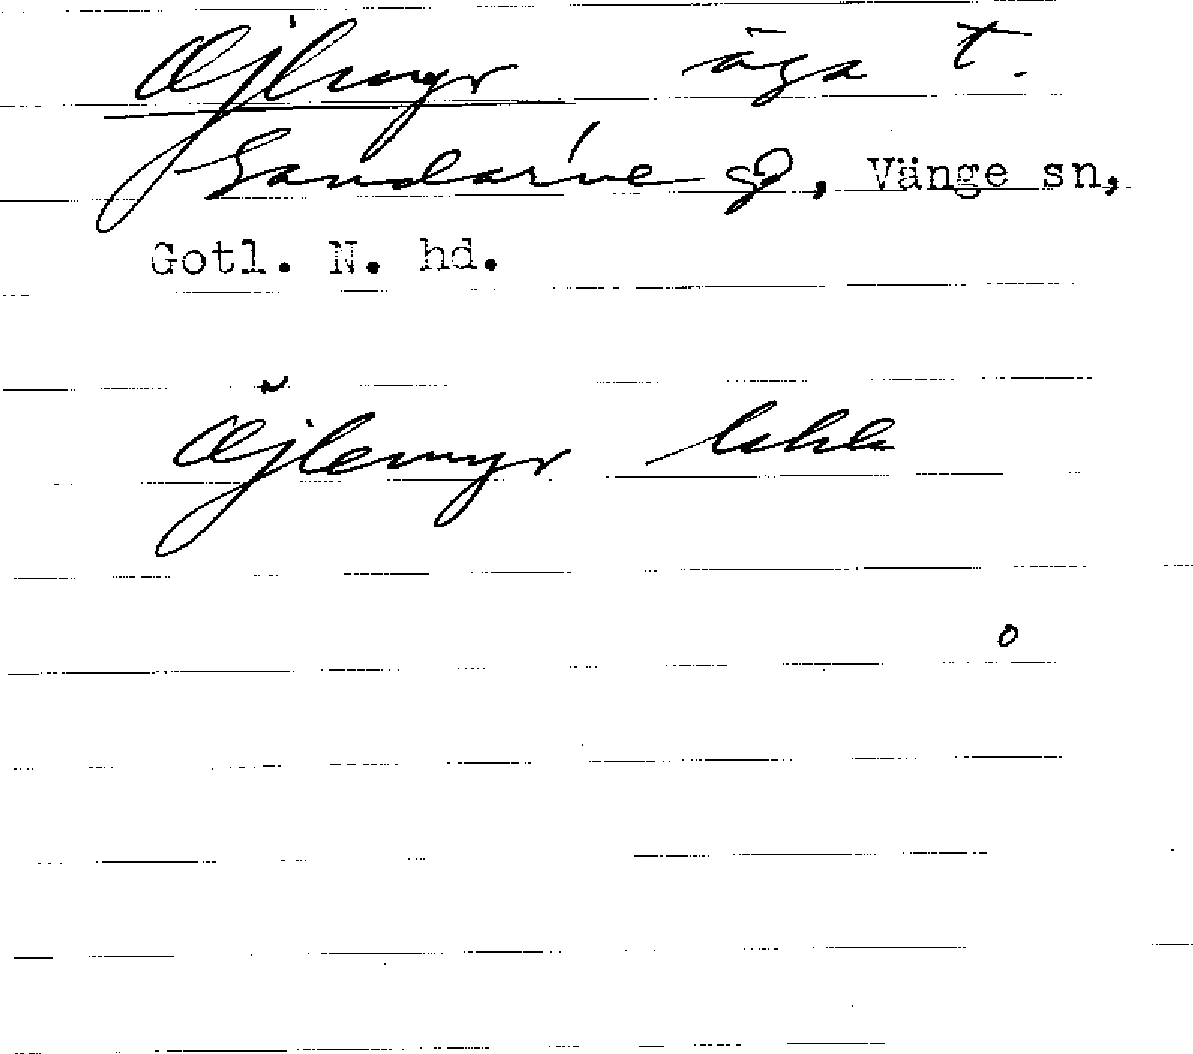 Ajlmyr äga t.
Sandarve gd, Vänge sn,
Gotl. N. hd.
Äjlemyr
o